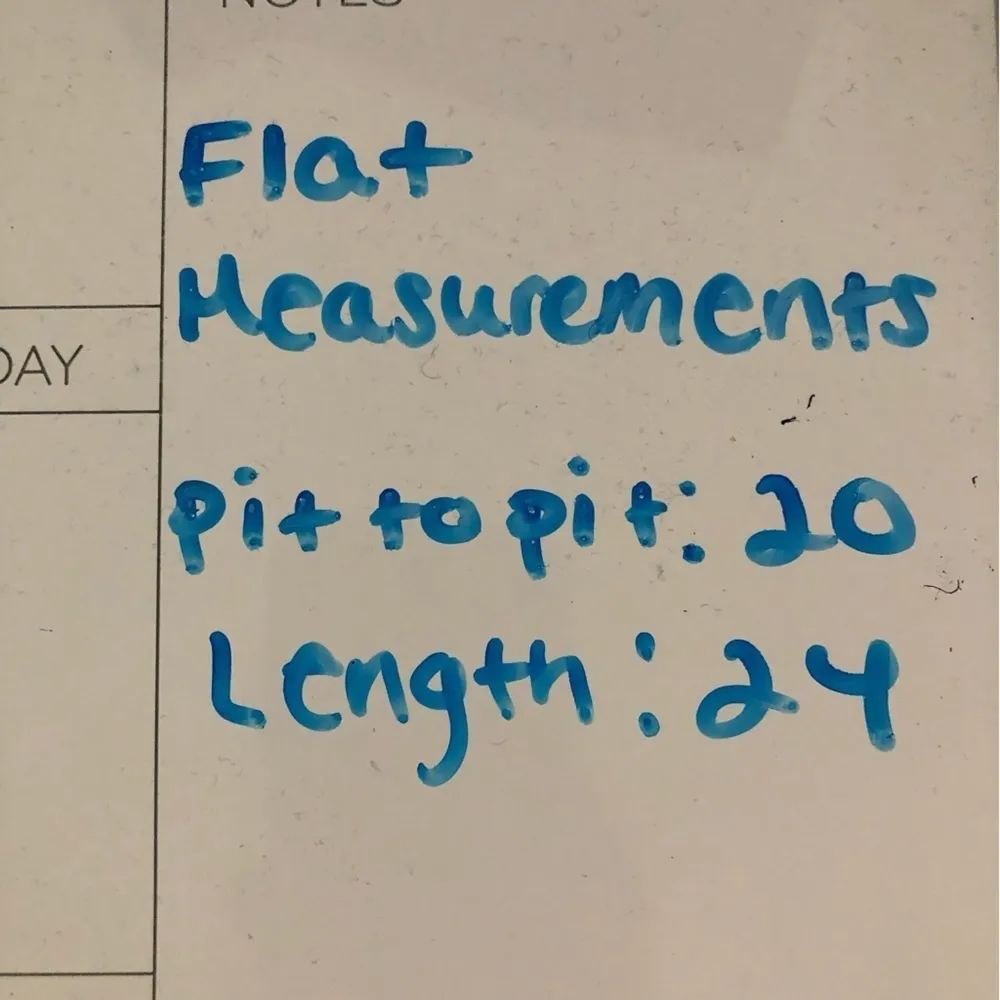 NOTES
Flat
Measurements
DAY
Pit to pit: 20
Length: 24